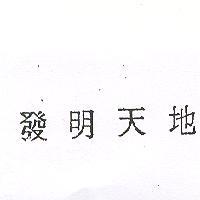 發明天地